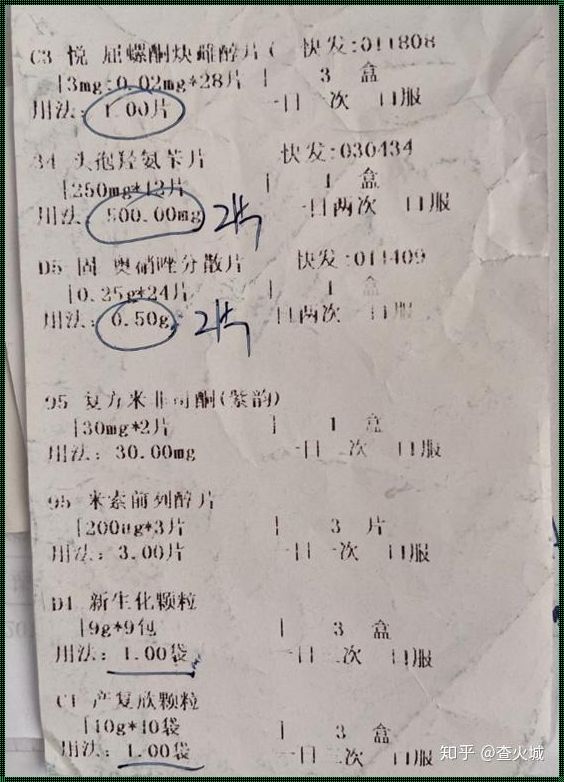 C3 悦 屈螺酮炔雌醇片( 快发:011808
[3mg:0.02mg*28片 | 3 盒
用法: 1.00片 一日一次 口服
34 头孢羟氨苄片 快发:030434
[250mg*12片 | 1 盒
用法: 500.00mg 2片 一日两次 口服
D5 固 奥硝唑分散片 快发:011409
[0.25g*24片 | 1 盒
用法: 0.50g 2片 一日两次 口服
95 复方米非司酮(紫韵)
[30mg*2片 | 1 盒
用法: 30.00mg 一日 次 口服
95 米索前列醇片
[200ug*3片 | 3 片
用法: 3.00片 一日一次 口服
D1 新生化颗粒
[9g*9包 | 3 盒
用法: 1.00袋 一日 次 口服
C1 产复欣颗粒
[10g*10袋 | 3 盒
用法: 1.00袋 一日 次 口服
知乎 @查火城